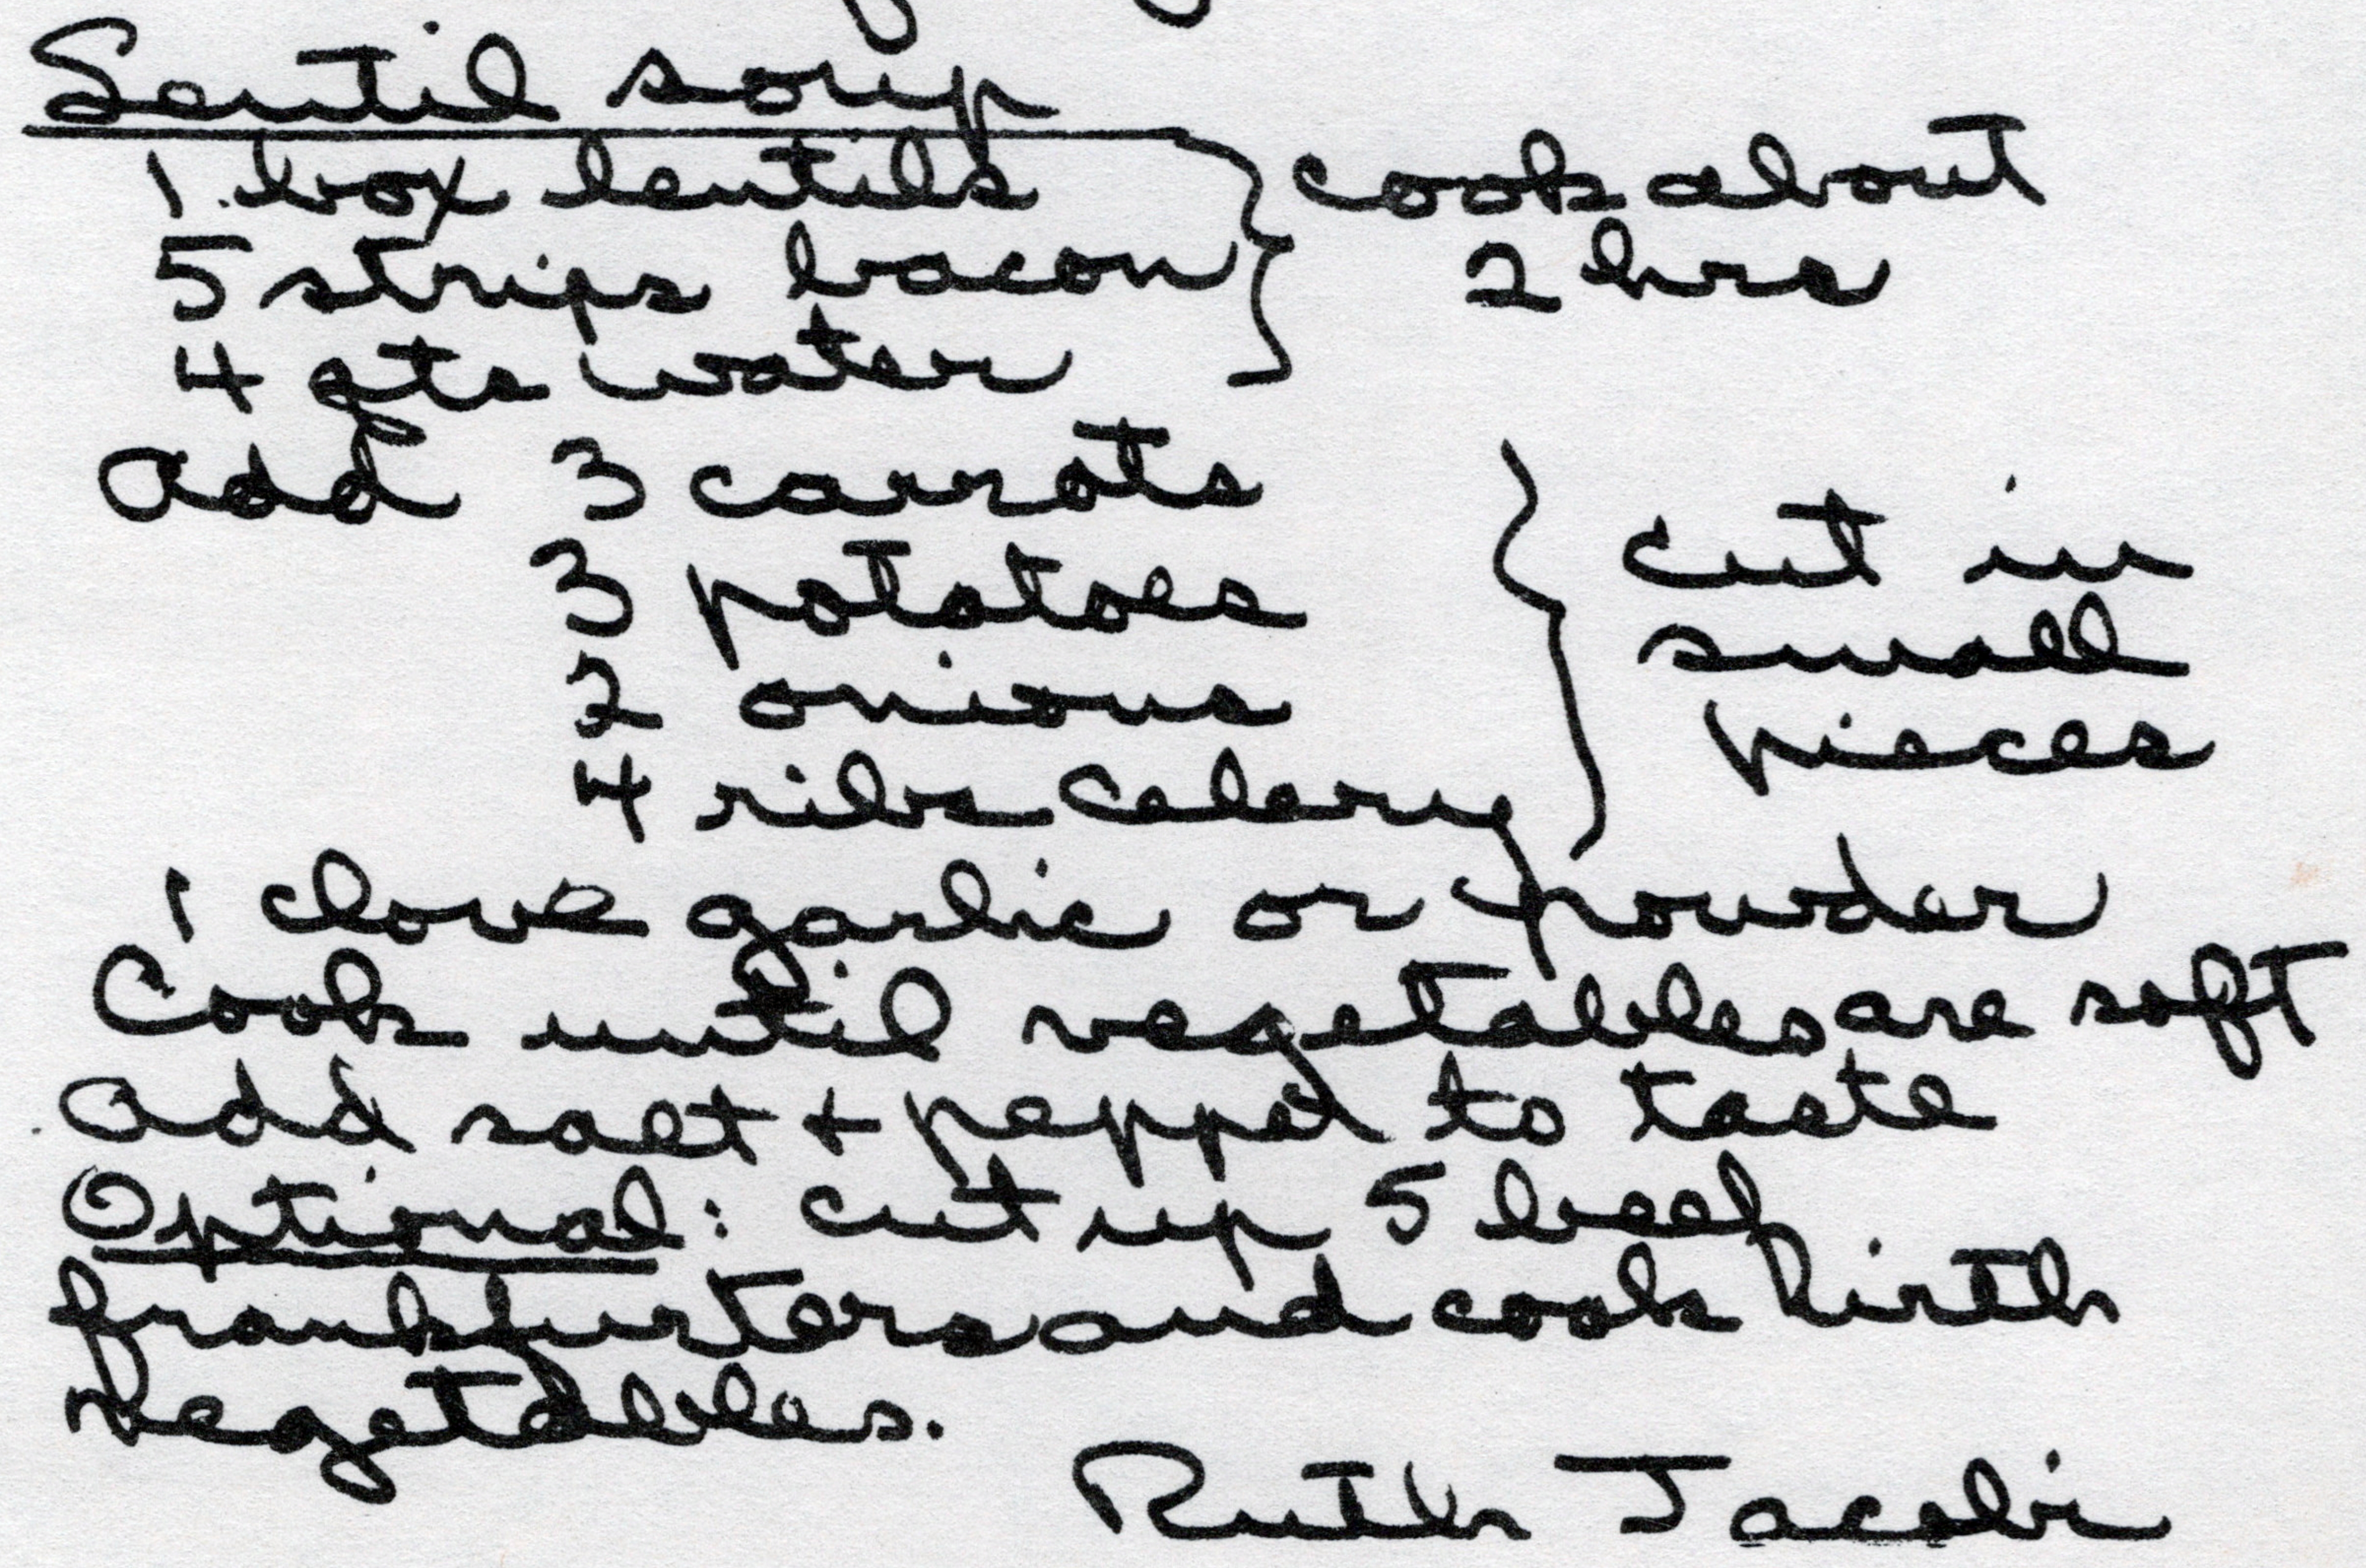 Lentil soup
1 box lentils
5 strips bacon
4 qts water
cook about
2 hrs
Add 3 carrots
3 potatoes
2 onions
4 ribs celery
cut in
small
pieces
1 clove garlic or powder
Cook until vegetables are soft
Add salt + pepper to taste
Optional: cut up 5 beef
frankfurters and cook with
vegetables.
Ruth Jacobi